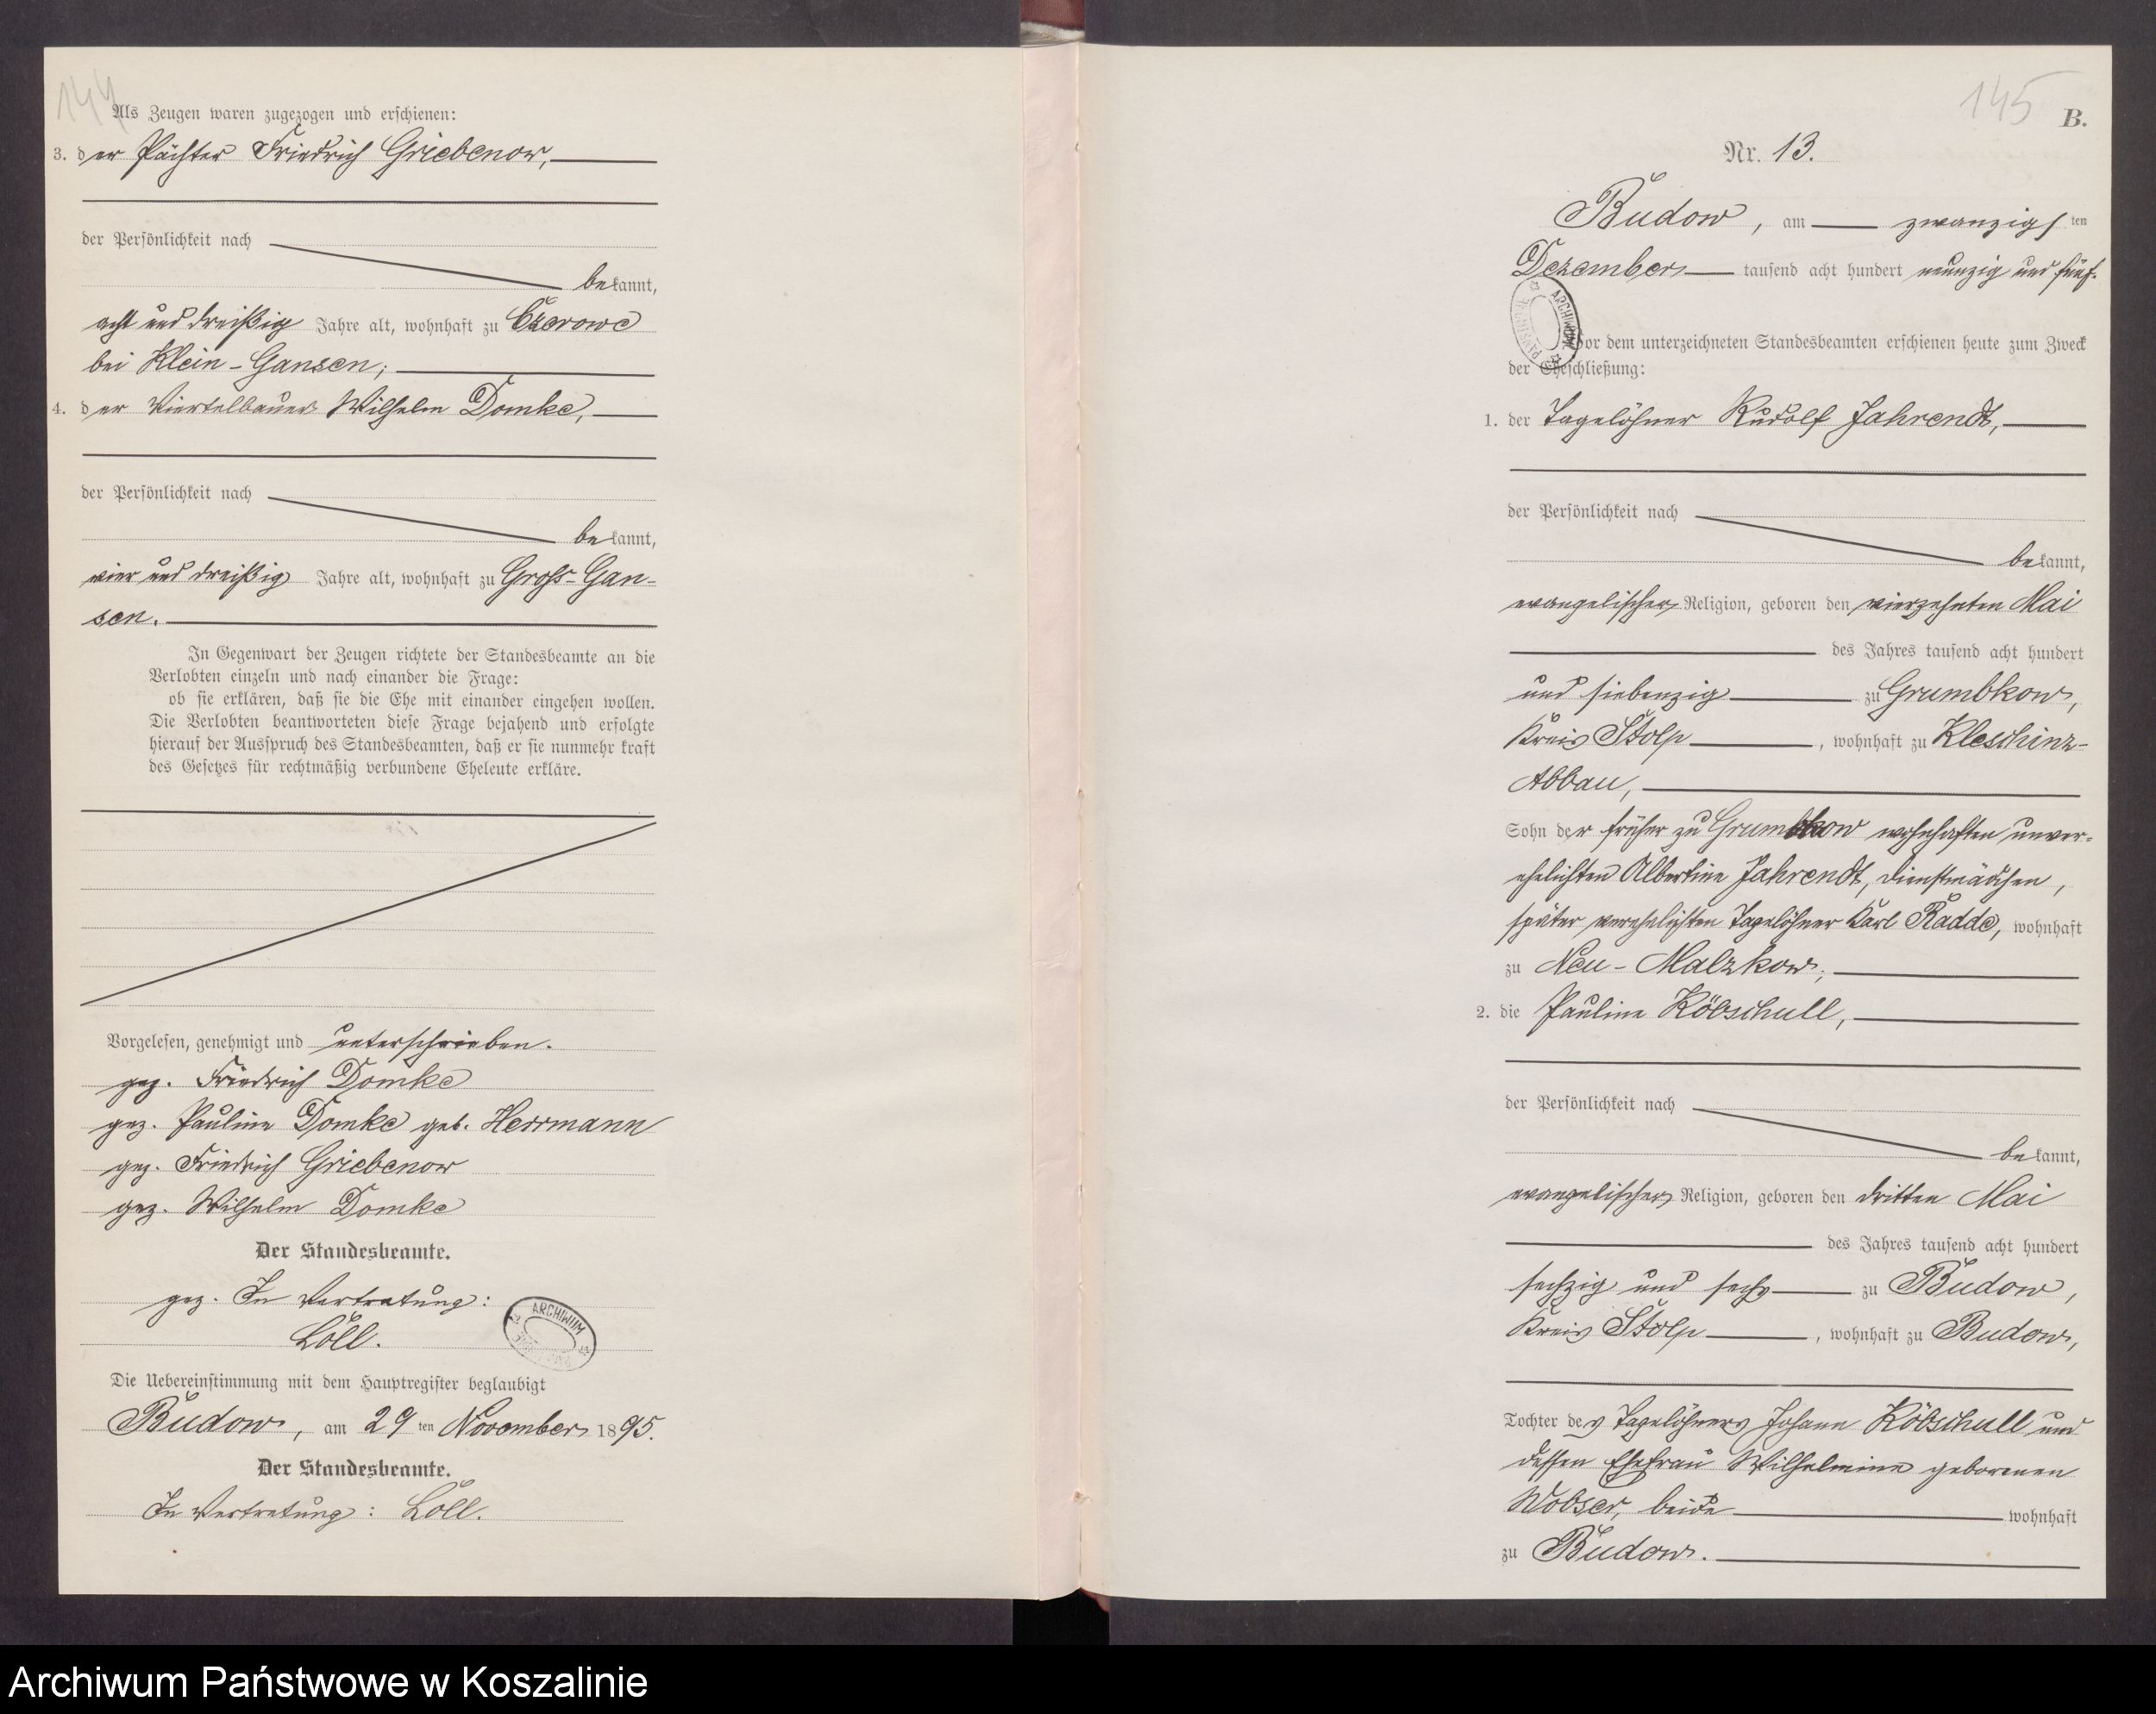 144
Als Zeugen waren zugezogen und erschienen:
3. der Pächter Friedrich Griebenow,
der Persönlichkeit nach
bekannt,
acht und dreißig Jahre alt, wohnhaft zu Czarowe
bei Klein-Gansen;
4. der Viertelbauer Wilhelm Domke,
der Persönlichkeit nach
bekannt,
vier und dreißig Jahre alt, wohnhaft zu Gross-Gan-
sen.
In Gegenwart der Zeugen richtete der Standesbeamte an die
Verlobten einzeln und nach einander die Frage:
ob sie erklären, daß sie die Ehe mit einander eingehen wollen.
Die Verlobten beantworteten diese Frage bejahend und erfolgte
hierauf der Ausspruch des Standesbeamten, daß er sie nunmehr kraft
des Gesetzes für rechtmäßig verbundene Eheleute erkläre.
Vorgelesen, genehmigt und unterschrieben.
gez. Friedrich Domke
gez. Pauline Domke geb. Herrmann
gez. Friedrich Griebenow
gez. Wilhelm Domke
Der Standesbeamte.
gez. In Vertretung:
Löll.
ARCHIWUM
Die Uebereinstimmung mit dem Hauptregister beglaubigt
Budow, am 29ten November 1895.
Der Standesbeamte.
In Vertretung: Löll.
145
B.
Nr. 13.
Budow, am zwanzigsten
Dezember tausend acht hundert neunzig und fünf.
ARCHIWUM
Vor dem unterzeichneten Standesbeamten erschienen heute zum Zweck
der Eheschließung:
1. der Tagelöhner Rudolf Jahrendt,
der Persönlichkeit nach
bekannt,
evangelischer Religion, geboren den vierzehnten Mai
des Jahres tausend acht hundert
und siebenzig zu Grumbkow,
Kreis Stolp, wohnhaft zu Kleschinz-
Abbau,
Sohn der früher zu Grumbkow wohnhaften unver-
ehelichten Albertine Jahrendt, Dienstmädchen,
später verehelichten Tagelöhner Karl Radde, wohnhaft
zu Neu-Malzkow;
2. die Pauline Köbschull,
der Persönlichkeit nach
bekannt,
evangelischer Religion, geboren den dritten Mai
des Jahres tausend acht hundert
sechzig und sechs zu Budow,
Kreis Stolp, wohnhaft zu Budow,
Tochter des Tagelöhners Johann Köbschull und
dessen Ehefrau Wilhelmine geborenen
Wobser, beide wohnhaft
zu Budow.
Archiwum Państwowe w Koszalinie